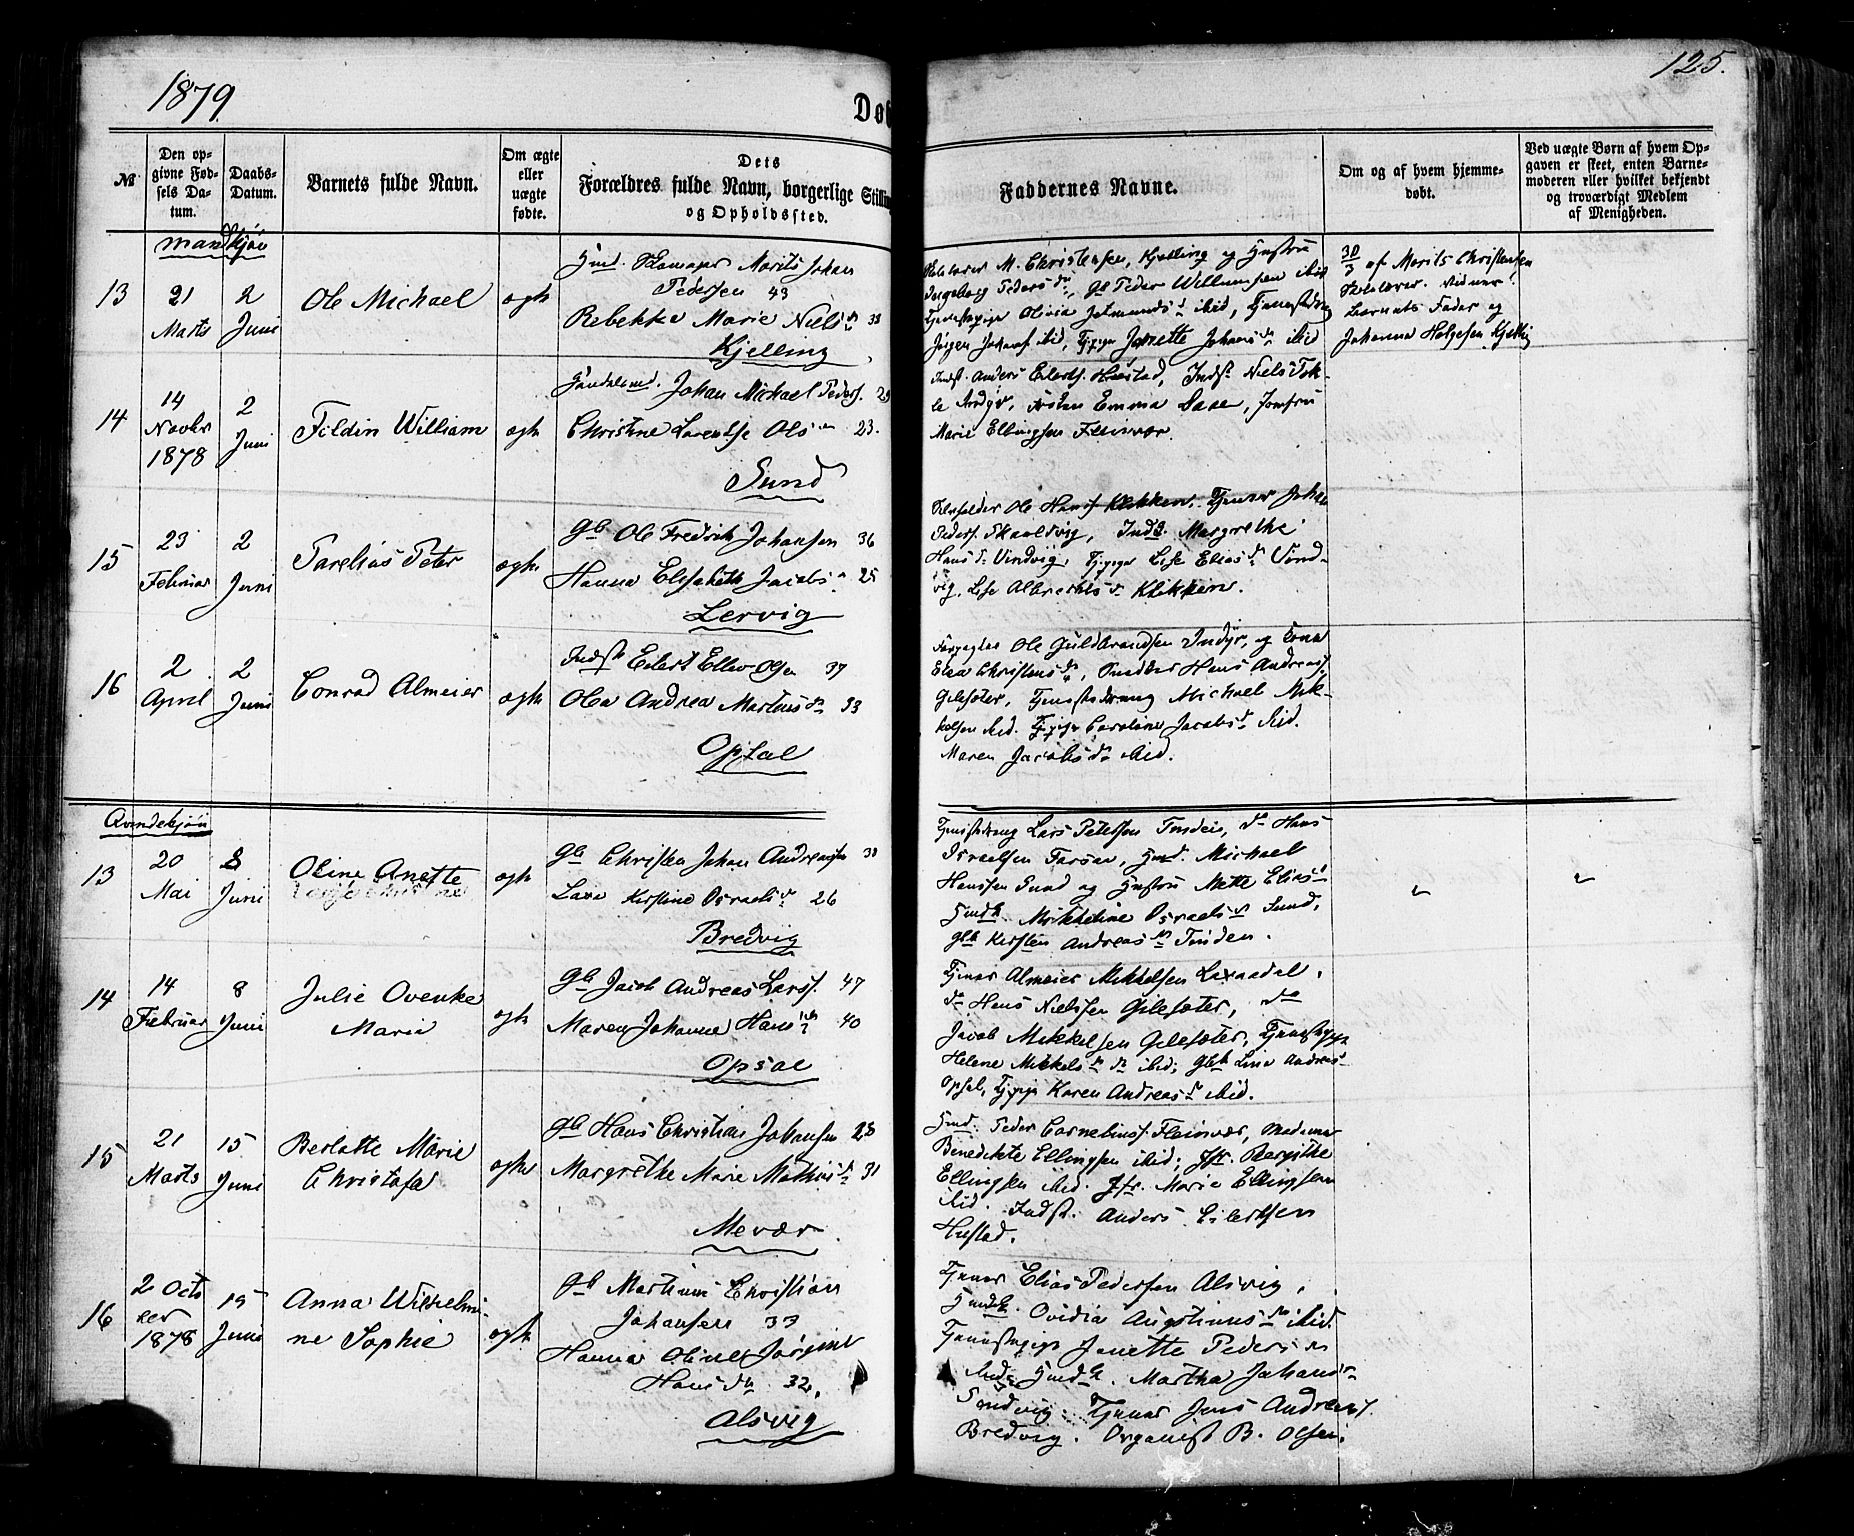 1879.
125.
Døb
№
Den op-
givne Fød-
sels Da-
tum.
Daabs-
Datum.
Barnets fulde Navn.
Om ægte
eller
uægte
fødte.
Dets
Forældres fulde Navn, borgerlige Stilling
og Opholdssted.
Faddernes Navne.
Om og af hvem hjemme-
døbt.
Ved uægte Børn af hvem Op-
gaven er skeet, enten Barne-
moderen eller hvilket bekjendt
og troværdigt Medlem
af Menigheden.
Mandkjøn
13
21
Marts
2
Juni
Ole Michael
ægte
Morits Johan
Pedersen 43
Rebekka Marie Nielsdr 38
Kjelling
M. Christensen, Kjelling og Hustru
Ingeborg Pedersdr, Peder Willumsen ibid
Olivia ibid,
Jørgen ibid, Janette Johansdr ibid
30/3 af Morits Christensen
Vidner:
Barnets Fader og
Johanna Helgesen Kjelling
14
14
Novbr
1878
2
Juni
Tildin William
ægte
Johan Michael Peders. 29
Christine Lorentse Olsdr 23.
Sund
Indst. Anders Eilerts. Hustad, Indst. Niels Tok-
le Indyr, Emma Saxe, Jomfru
Marie Ellingsen Fleinvær.
15
23
Februar
2
Juni
Parelius Peter
ægte
Gb Ole Fredrik Johansen 36
Hanna Elisabeth Jacobsdr 25
Lervig
Ole Hans. Klikken, Tjener Johan
Peders. Skaalsvig, Inds. Margrethe
Hansdr Vindvig, Tjpige Lise Eliasdr Vind-
vig, Lise Albrechtsdr Klikken.
16
2
April
2
Juni
Conrad Almeier
ægte
Indst. Eilert Elling Olsen 37
Ole Andrea Martinusdr 33
Opsal
Forpagter Ole Guldbrandsen Indyr, og Kone
Elsa Christensdr, Hans Andreas.
Gilesæter, Tjenestedreng Michael Mik-
kelsen ibid. Tjpige Caroline Jacobsdr ibid.
Maren Jacobsdr ibid.
Qvindekjøn
13
20
Mai
8
Juni
Oline Anette
ægte
Gb Christen Johan Andreassen 38
Lava Kirstine Osraelsdr 26
Bredvig
Tjenestedreng Lars Petersen Tinden, do Hans
Osraelsen Farsar, Gmd. Michael
Hanssen Sund og Hustru Mette Eliasdr
Gmdk. Mikkeline Osraelsdr Sund,
Gbk Kirsten Andreasdr Tinden.
14
14
Februar
8
Juni
Julie Ovenke
Maria
ægte
Gb Jacob Andreas Larss. 47
Maren Johanne Hansdr 40
Opsal
Tjener Almeier Mikkelsen Laxaadal,
do Hans Nielssen Gilesæter, do
Jacob Mikkelsen Gilesæter, Tjenestepige
Helene Mikkelsdr do ibid; Gbk Lina Andreas
Opsal, Tjpige Karen Andreasdr ibid.
15
21
Marts
15
Juni
Berlotte Marie
Christofa
ægte
Gb Hans Christian Johansen 28
Margrethe Marie Mathisdr 31
Mevær
Gmd. Peder Cornelius. Fleinvær, Madame
Benedikte Ellingsen ibid; Jfr. Bergithe
Ellingsen ibid. Jfr. Marie Ellingsen
ibid. Indst. Anders Eilertsen
Hustad.
16
2 Octo
ber
1878
15
Juni
Anna Wilhelmi-
ne Sophie
ægte
Gb Martinus Christian
Johansen 33
Hanna Oline Jørgine
Hansdr 32,
Alsvig
Tjener Elias Pedersen Alsvig,
Gmdk. Ovidia Augstinusdr ibid.
Tjenestepige Janette Pedersdr
ibid. Gmdk. Martha Johansdr
Sandvig. Tjener Jens Andreas.
Bredvig. Organist B. Olsen.